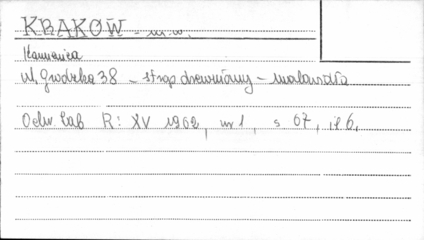 KRAKÓW - m.w.
Kamienica
ul. Grodzka 38 - strop drewniany - malowidła
Ochr Zab R: XV 1962, nr 1, s 67, il 6.